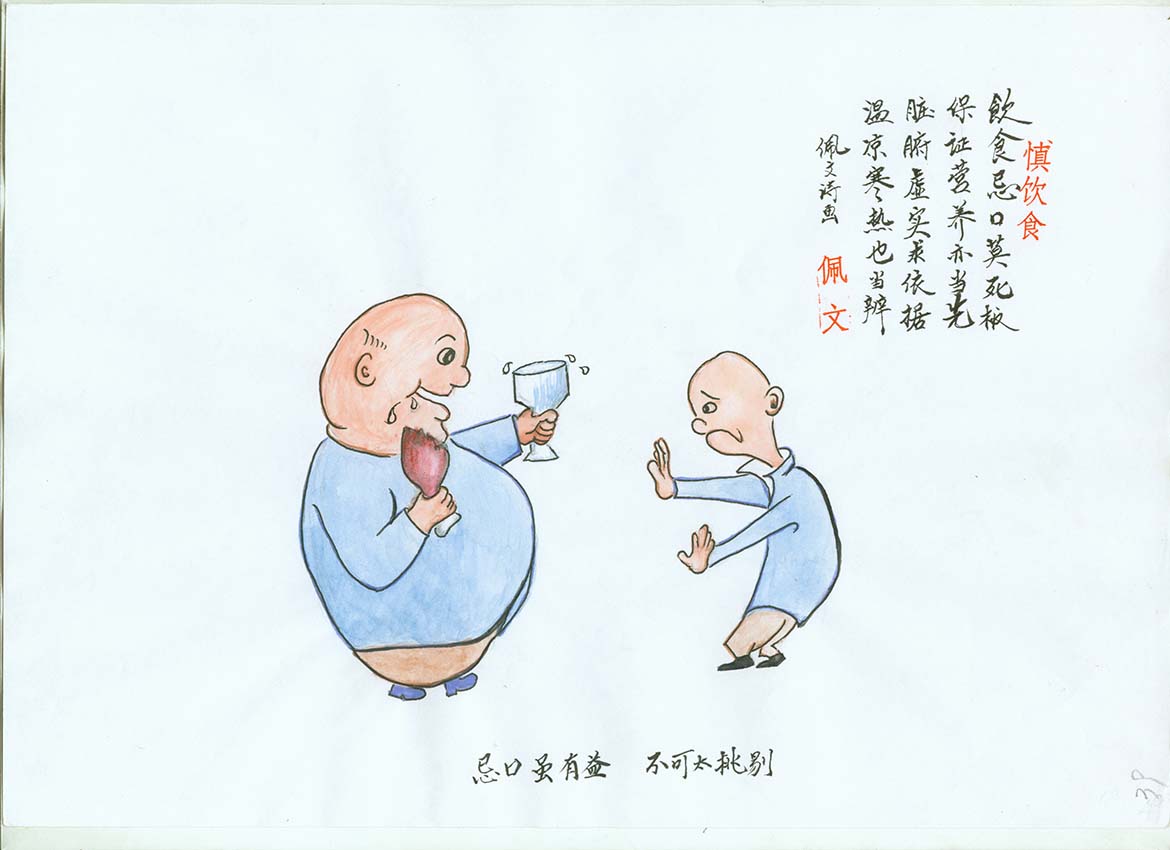 慎饮食
飲食忌口莫死板
保证营养亦当先
脏腑虚实求依据
温凉寒热也当辨
佩文诗画
佩文
忌口虽有益 不可太挑剔